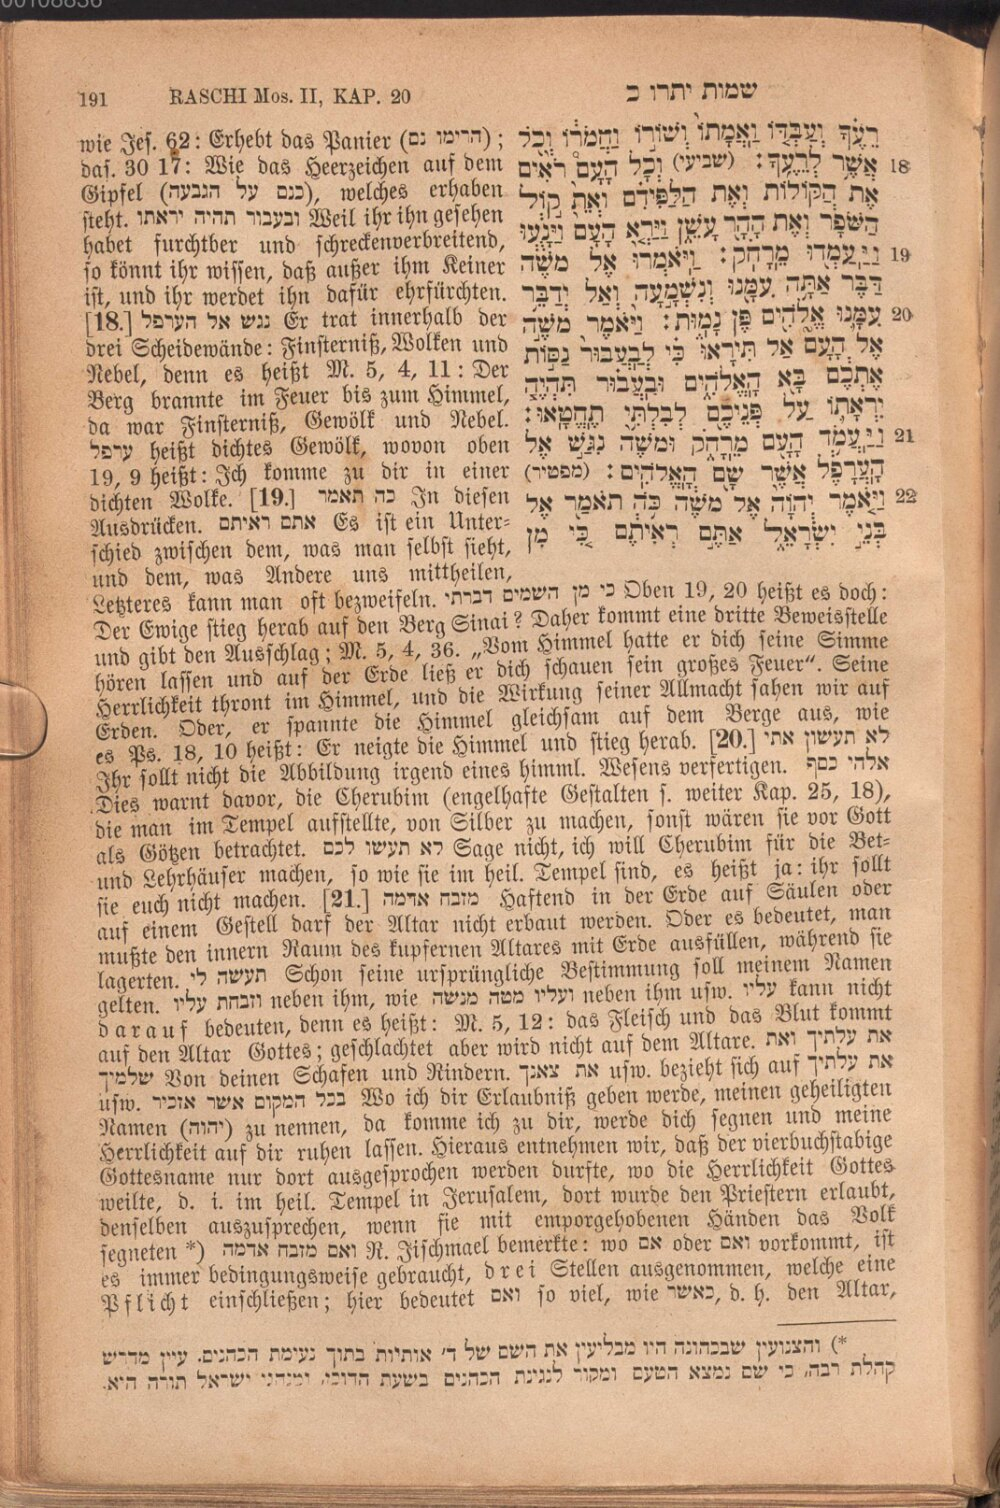 00108836
191 RASCHI Mos. II, KAP. 20 שמות יתרו כ
wie Jes. 62: Erhebt das Panier (הרימו נס);
das. 30 17: Wie das Heerzeichen auf dem
Gipfel (כנס על הגבעה), welches erhaben
steht. ובעבור תהיה יראתו Weil ihr ihn gesehen
habet furchtber und schreckenverbreitend,
so könnt ihr wissen, daß außer ihm Keiner
ist, und ihr werdet ihn dafür ehrfürchten.
[18.] נגש אל הערפל Er trat innerhalb der
drei Scheidewände: Finsterniß, Wolken und
Nebel, denn es heißt M. 5, 4, 11: Der
Berg brannte im Feuer bis zum Himmel,
da war Finsterniß, Gewölk und Nebel.
ערפל heißt dichtes Gewölk, wovon oben
19, 9 heißt: Ich komme zu dir in einer
dichten Wolke. [19.] כה תאמר In diesen
Ausdrücken. אתם ראיתם Es ist ein Unter=
schied zwischen dem, was man selbst sieht,
und dem, was Andere uns mittheilen,
רֵעֶ֔ךָ וְעַבְדּ֤וֹ וַאֲמָתוֹ֙ וְשׁוֹר֣וֹ וַחֲמֹר֔וֹ וְכֹ֖ל
אֲשֶׁ֥ר לְרֵעֶֽךָ׃ (שביעי) וְכָל הָעָם֩ רֹאִ֨ים 18
אֶת הַקּוֹלֹ֜ת וְאֶת הַלַּפִּידִ֗ם וְאֵת֙ ק֣וֹל
הַשֹּׁפָ֔ר וְאֶת הָהָ֖ר עָשֵׁ֑ן וַיַּ֤רְא הָעָם֙ וַיָּנֻ֔עוּ
וַיַּֽעַמְד֖וּ מֵֽרָחֹֽק׃ וַיֹּֽאמְרוּ֙ אֶל מֹשֶׁ֔ה 19
דַּבֵּר אַתָּ֥ה עִמָּ֖נוּ וְנִשְׁמָ֑עָה וְאַל יְדַבֵּ֥ר
עִמָּ֛נוּ אֱלֹהִ֖ים פֶּן נָמֽוּת׃ וַיֹּ֨אמֶר מֹשֶׁ֣ה 20
אֶל הָעָם֮ אַל תִּירָאוּ֒ כִּ֗י לְבַֽעֲבוּר֙ נַסּ֣וֹת
אֶתְכֶ֔ם בָּ֖א הָאֱלֹהִ֑ים וּבַעֲב֗וּר תִּהְיֶ֧ה
יִרְאָת֛וֹ עַל פְּנֵיכֶ֖ם לְבִלְתִּ֥י תֶחֱטָֽאוּ׃
וַיַּעֲמֹ֥ד הָעָ֖ם מֵרָחֹ֑ק וּמֹשֶׁה֙ נִגַּ֣שׁ אֶל 21
הָֽעֲרָפֶ֔ל אֲשֶׁר שָׁ֖ם הָאֱלֹהִֽים׃ (מפטיר)
וַיֹּ֤אמֶר יְהוָה֙ אֶל מֹשֶׁ֔ה כֹּ֥ה תֹאמַ֖ר אֶל 22
בְּנֵ֣י יִשְׂרָאֵ֑ל אַתֶּ֣ם רְאִיתֶ֔ם כִּ֚י מִן
Letzteres kann man oft bezweifeln. כי מן השמים דברתי Oben 19, 20 heißt es doch:
Der Ewige stieg herab auf den Berg Sinai? Daher kommt eine dritte Beweisstelle
und gibt den Ausschlag; M. 5, 4, 36. „Vom Himmel hatte er dich seine Simme
hören lassen und auf der Erde ließ er dich schauen sein großes Feuer“. Seine
Herrlichkeit thront im Himmel, und die Wirkung seiner Allmacht sahen wir auf
Erden. Oder, er spannte die Himmel gleichsam auf dem Berge aus, wie
es Ps. 18, 10 heißt: Er neigte die Himmel und stieg herab. [20.] לא תעשון אתי
Ihr sollt nicht die Abbildung irgend eines himml. Wesens verfertigen. אלהי כסף
Dies warnt davor, die Cherubim (engelhafte Gestalten s. weiter Kap. 25, 18),
die man im Tempel aufstellte, von Silber zu machen, sonst wären sie vor Gott
als Götzen betrachtet. לא תעשו לכם Sage nicht, ich will Cherubim für die Bet=
und Lehrhäuser machen, so wie sie im heil. Tempel sind, es heißt ja: ihr sollt
sie euch nicht machen. [21.] מזבח אדמה Haftend in der Erde auf Säulen oder
auf einem Gestell darf der Altar nicht erbaut werden. Oder es bedeutet, man
mußte den innern Raum des kupfernen Altares mit Erde ausfüllen, während sie
lagerten. תעשה לי Schon seine ursprüngliche Bestimmung soll meinem Namen
gelten. וזבחת עליו neben ihm, wie ועליו מטה מנשה neben ihm usw. עליו kann nicht
darauf bedeuten, denn es heißt: M. 5, 12: das Fleisch und das Blut kommt
auf den Altar Gottes; geschlachtet aber wird nicht auf dem Altare. את עלתיך ואת
שלמיך Von deinen Schafen und Rindern. את צאנך usw. bezieht sich auf את עלתיך
usw. בכל המקום אשר אזכיר Wo ich dir Erlaubniß geben werde, meinen geheiligten
Namen (יהוה) zu nennen, da komme ich zu dir, werde dich segnen und meine
Herrlichkeit auf dir ruhen lassen. Hieraus entnehmen wir, daß der vierbuchstabige
Gottesname nur dort ausgesprochen werden durfte, wo die Herrlichkeit Gottes
weilte, d. i. im heil. Tempel in Jerusalem, dort wurde den Priestern erlaubt,
denselben auszusprechen, wenn sie mit emporgehobenen Händen das Volk
segneten *) ואם מזבח אדמה R. Jischmael bemerkte: wo אם oder ואם vorkommt, ist
es immer bedingungsweise gebraucht, drei Stellen ausgenommen, welche eine
Pflicht einschließen; hier bedeutet ואם so viel, wie כאשר, d. h. den Altar,
*) והצנועין שבכהונה היו מבליעין את השם של ד' אותיות בתוך נעימת הכהנים. עיין מדרש
קהלת רבה, כי שם נמצא הטעם ומקור לנגינת הכהנים בשעת הדוכן, ומנהגי ישראל תורה היא.